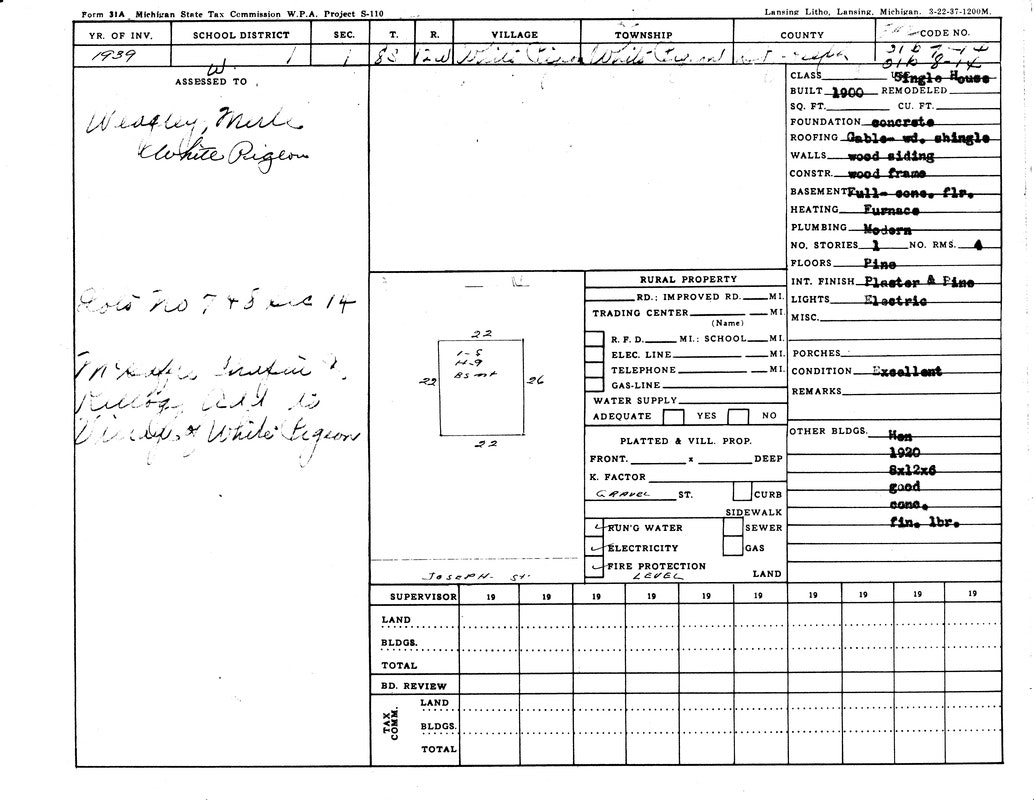 Form 31A Michigan State Tax Commission W.P.A. Project S-110
Lansing Litho, Lansing, Michigan. 3-22-37-1200M.
YR. OF INV. SCHOOL DISTRICT SEC. T. R. VILLAGE TOWNSHIP COUNTY CODE NO.
1939 1 1 8S 12W White Pigeon White Pigeon
W.
ASSESSED TO
Merle
White Pigeon
Lots No 7 & 8
Add to
White Pigeon
22
1-S
H-9
Bsmt
22
26
22
JOSEPH ST.
RURAL PROPERTY
RD.; IMPROVED RD. MI.
TRADING CENTER MI.
(Name)
R. F. D. MI.; SCHOOL MI.
ELEC. LINE MI.
TELEPHONE MI.
GAS-LINE
WATER SUPPLY
ADEQUATE YES NO
PLATTED & VILL. PROP.
FRONT. x DEEP
K. FACTOR
GRAVEL ST. CURB
SIDEWALK
RUN'G WATER SEWER
ELECTRICITY GAS
FIRE PROTECTION
LEVEL LAND
CLASS Single House
BUILT 1900 REMODELED
SQ. FT. CU. FT.
FOUNDATION concrete
ROOFING Gable- wd. shingle
WALLS wood siding
CONSTR. wood frame
BASEMENT Full- conc. flr.
HEATING Furnace
PLUMBING Modern
NO. STORIES 1 NO. RMS. 4
FLOORS Pine
INT. FINISH Plaster & Pine
LIGHTS Electric
MISC.
PORCHES
CONDITION Excellent
REMARKS
OTHER BLDGS. Hen
1920
8x12x6
good
conc.
fin. lbr.
SUPERVISOR 19 19 19 19 19 19 19 19 19
LAND
BLDGS.
TOTAL
BD. REVIEW
TAX COMM.
LAND
BLDGS.
TOTAL